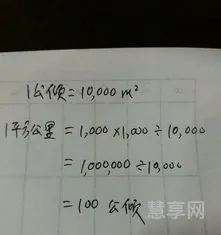 1公倾=10,000 m²
1平方公里=1,000×1,000÷10,000
=1,000,000÷10,000
=100 公倾
慧享网